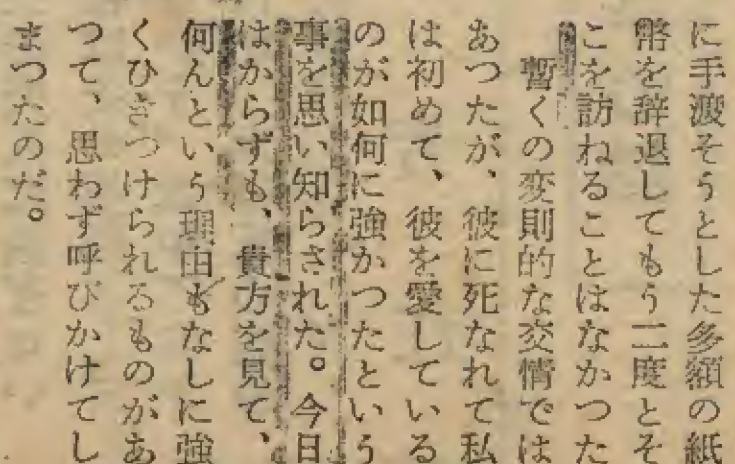 に手渡そうとした多額の紙
幣を辞退してもう二度とそ
こを訪ねることはなかつた
　暫くの変則的な交情では
あつたが、彼に死なれて私
は初めて、彼を愛している
のが如何に強かつたという
事を思い知らされた。今日
はからずも、貴方を見て、
何んという理由もなしに強
くひきつけられるものがあ
つて、思わず呼びかけてし
まつたのだ。